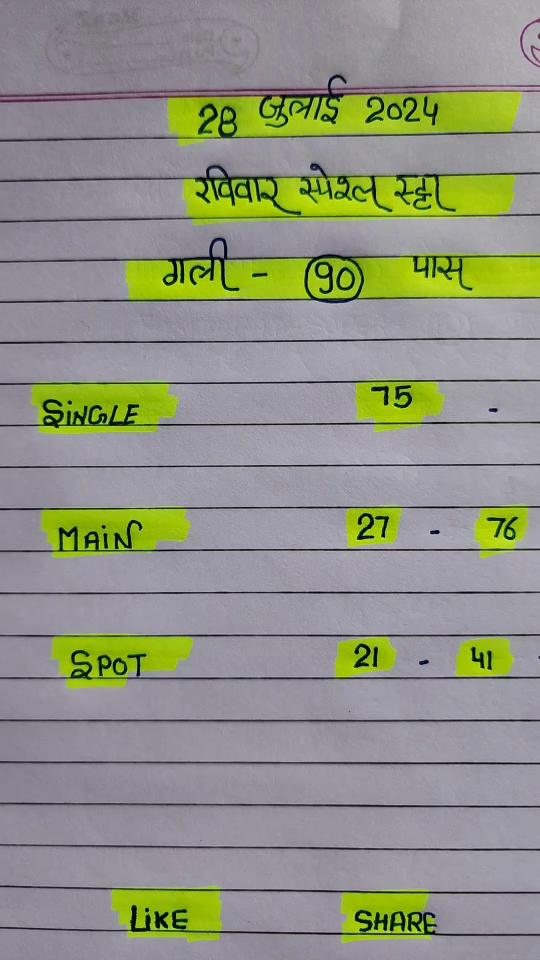 28 जुलाई 2024
रविवार स्पेश्ल स्ट्टा
गली - 90 पास
SiNGLE 75 -
MAiN 27 - 76
SPOT 21 - 41 -
LiKE SHARE